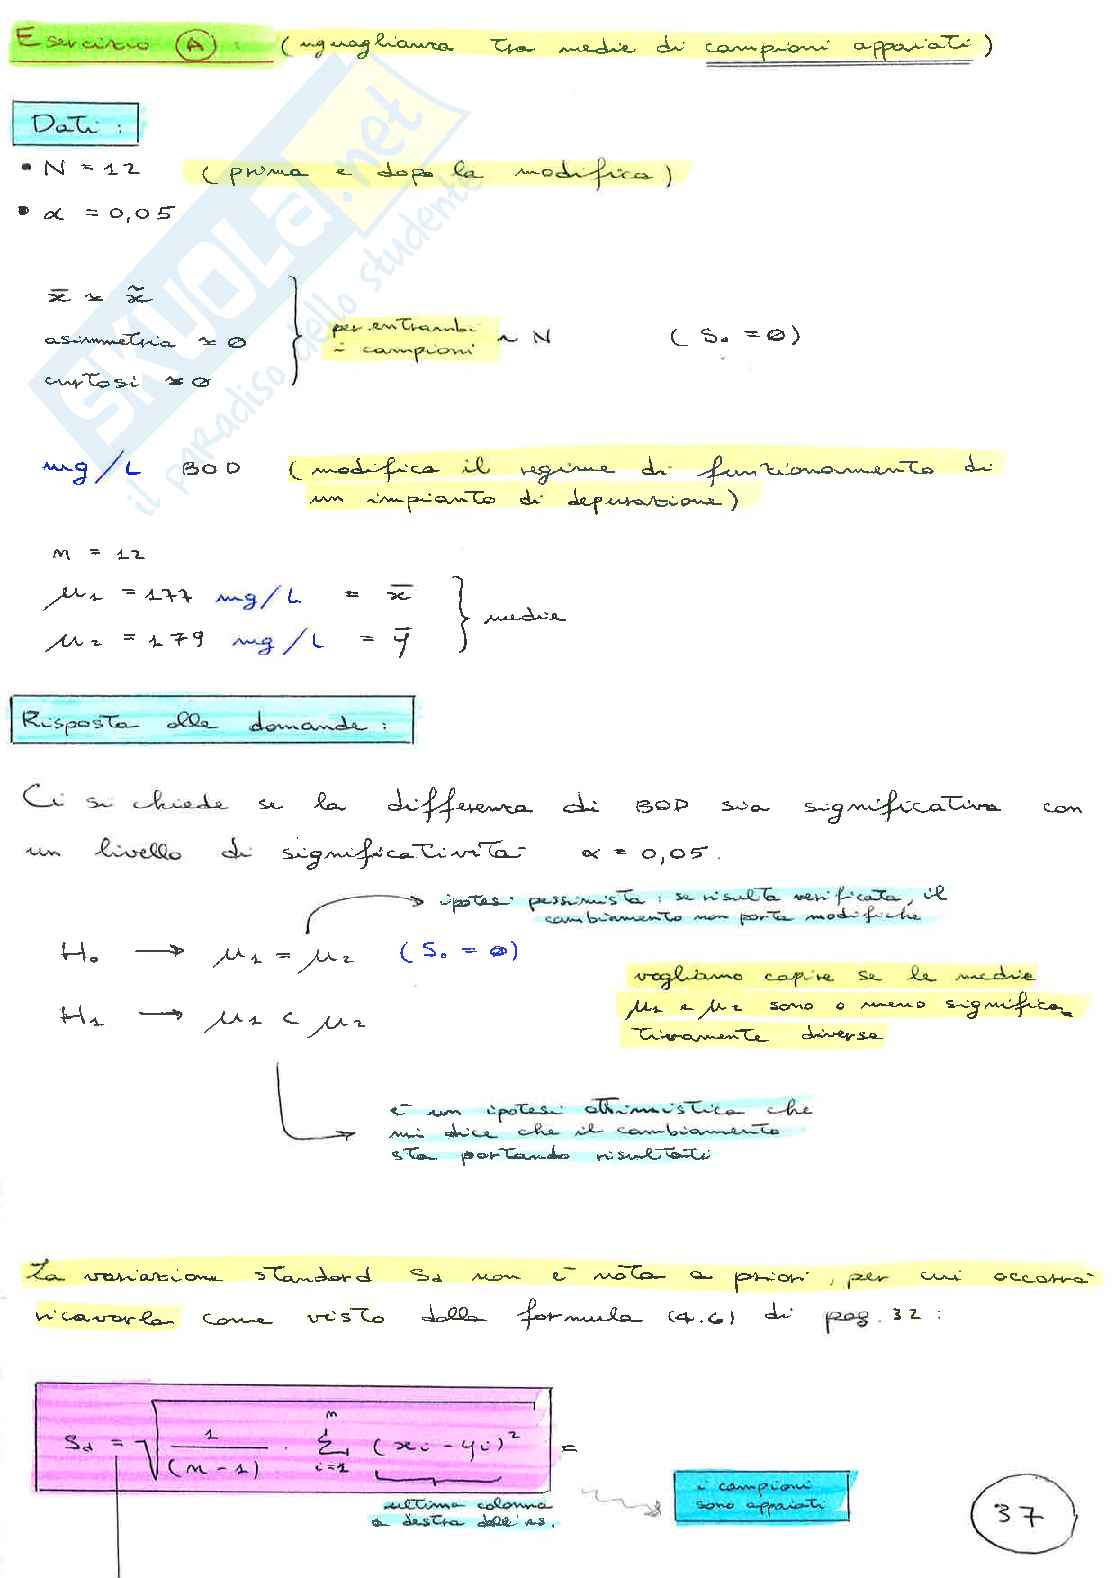 Esercizio A : (uguaglianza tra medie di campioni appaiati)
Dati :
• N = 12 (prima e dopo la modifica)
• α = 0,05
x̄ ≈ x̃
asimmetria ≈ 0
curtosi ≈ 0
per entrambi
i campioni
~ N (S₀ = 0)
mg/L BOD (modifica il regime di funzionamento di
un impianto di depurazione)
n = 12
μ₁ = 177 mg/L = x̄
μ₂ = 179 mg/L = ȳ
medie
Risposta alle domande :
Ci si chiede se la differenza di BOD sia significativa con
un livello di significatività α = 0,05.
ipotesi pessimista : se risulta verificata, il
cambiamento non porta modifiche
H₀ → μ₁ = μ₂ (S₀ = 0)
H₁ → μ₁ < μ₂
vogliamo capire se le medie
μ₁ e μ₂ sono o meno significa_
tivamente diverse
è un ipotesi ottimistica che
mi dice che il cambiamento
sta portando risultati
La variazione standard Sd non è nota a priori, per cui occorrà
ricavarla come visto dalla formula (4.6) di pag. 32 :
Sd = √ 1/(n-1) · Σ i=1 n (xi - yi)² =
ultima colonna
a destra dell'es.
i campioni
sono appaiati
37
SKUOLA.net
il paradiso dello studente